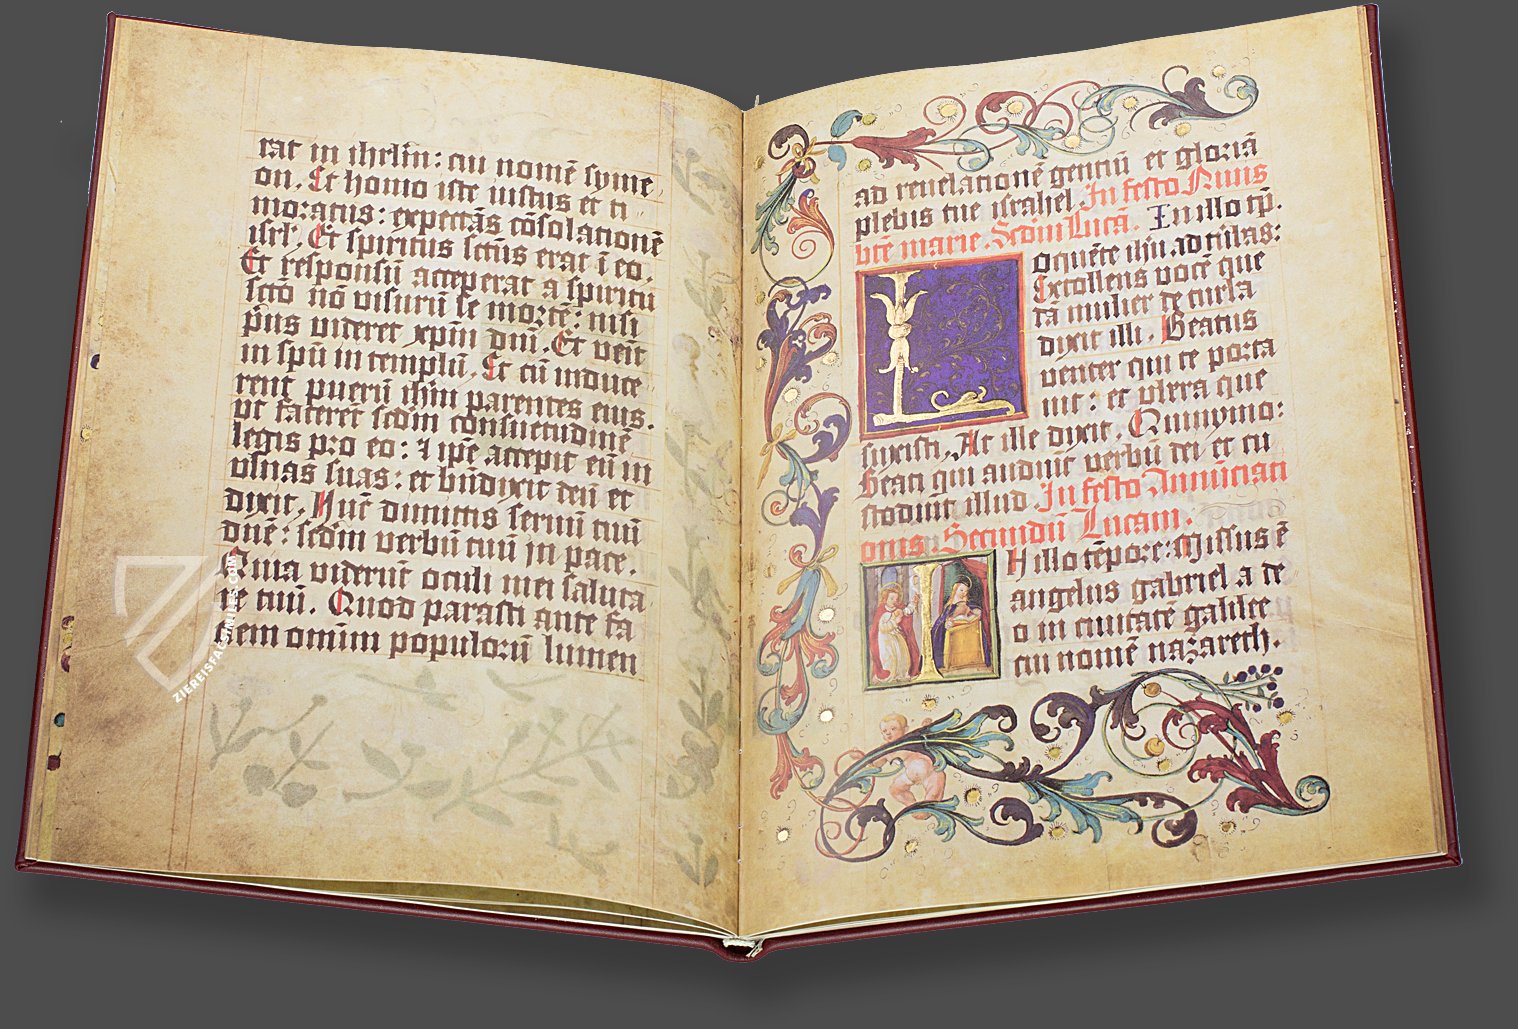 rat in ihrlm̄: cui nomē syme
on. Et homo iste iustus et ti
moratus: expectās cōsolationē
isrl'. Et spiritus sctūs erat ī eo.
Et responsū acceperat a spiritu
sctō nō visurū se mortē: nisi
pius videret xpm̄ dn̄i. Et venit
in spū in templū. Et cū induce
rent puerū ihm̄ parentes eius.
vt facerēt scdm̄ consuetudinē
legis pro eo: ⁊ ipē accepit eū in
vlnas suas: et bn̄dixit deū et
dixit. Nūc dimittis seruū tuū
dn̄e: scdm̄ verbū tuū in pace.
Quia viderūt oculi mei saluta
re tuū. Quod parasti ante fa
ciem omniū populorū lumen
ad reuelationē gentiū et gloriā
plebis tue israhel. In festo Niuis
btē marie. Scdm̄ Lucā. In illo tp̄.
Loquēte ihū ad turbas:
Extollens vocē que
dā mulier de turba
dixit illi. Beatus
venter qui te porta
uit: et vbera que
suxisti. At ille dixit. Quinymo:
Beati qui audiūt verbū dei et cu
stodiūt illud. In festo Annūciati
onis Secundū Lucam.
In illo tēpore: Missus ē
angelus gabriel a de
o in ciuitatē galilee
cui nomē nazareth.
ZIEREISFACSIMILES.COM